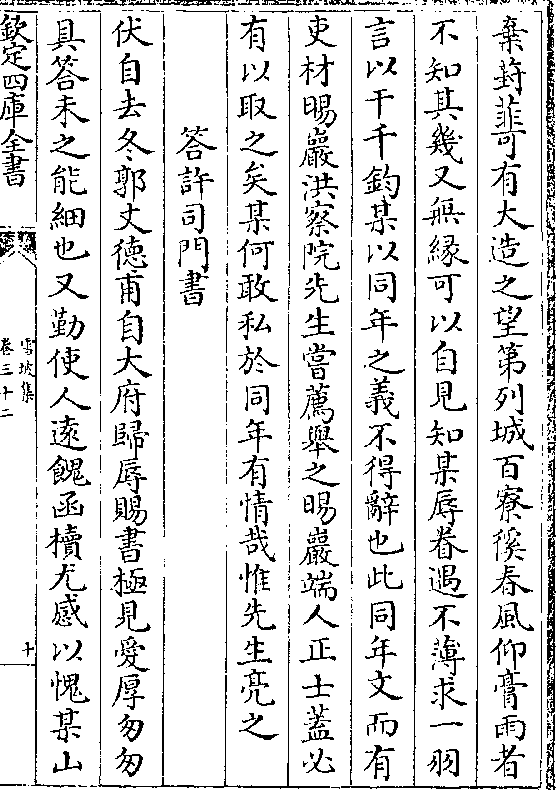 棄葑菲可有大造之望第列城百寮徯春風仰膏雨者
不知其幾又無緣可以自見知某辱眷遇不薄求一羽
言以干千鈞某以同年之義不得辭也此同年文而有
吏材暘巖洪察院先生嘗薦舉之暘巖端人正士蓋必
有以取之矣某何敢私於同年有情哉惟先生亮之
答許司門書
伏自去冬郭丈德甫自大府歸辱賜書極見愛厚匆匆
具答未之能細也又勤使人遠餽函櫝尤感以愧某山
欽定四庫全書
雪坡集
卷三十二
十